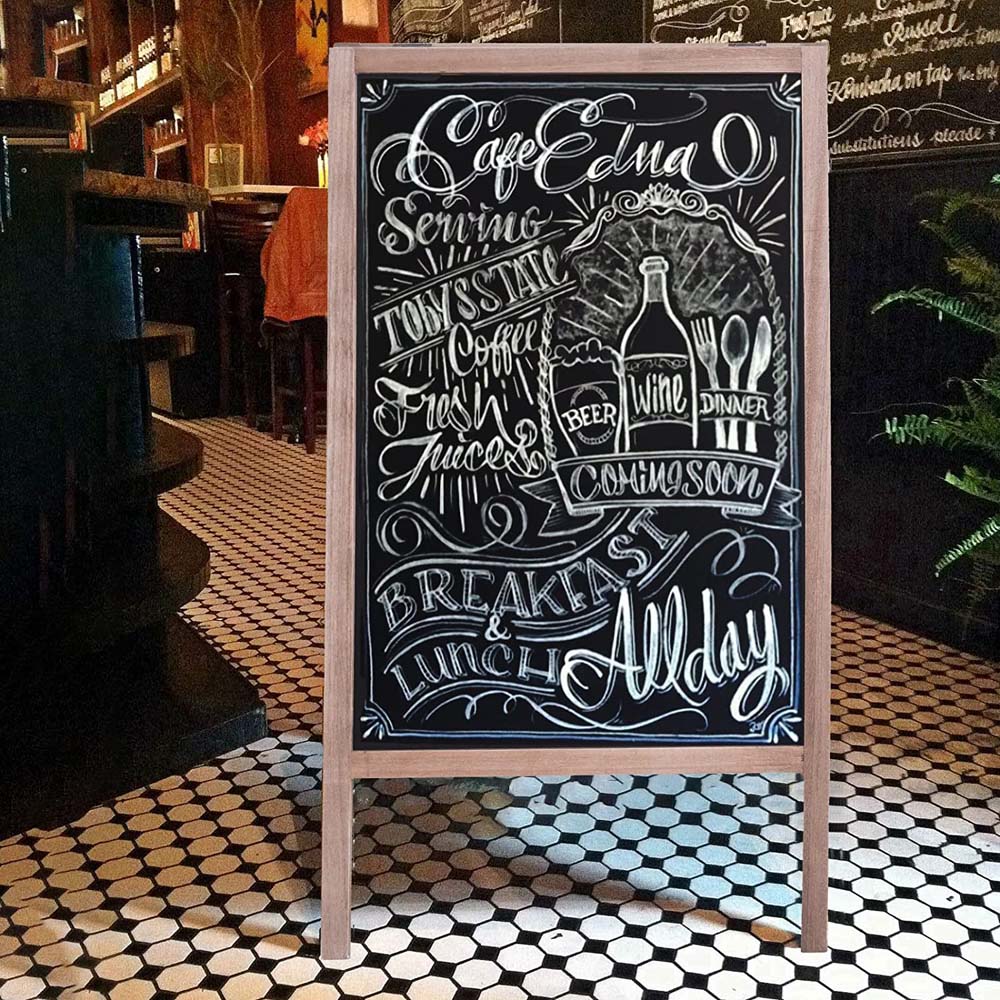 Cafe Edna
Serving
TOBYS STATE
Coffee
Fresh
Juices &
BEER
Wine
DINNER
COMING SOON
BREAKFAST
&
LUNCH
All day
Standard
Fresh Juice
Russell
Kombucha on tap
substitutions please *